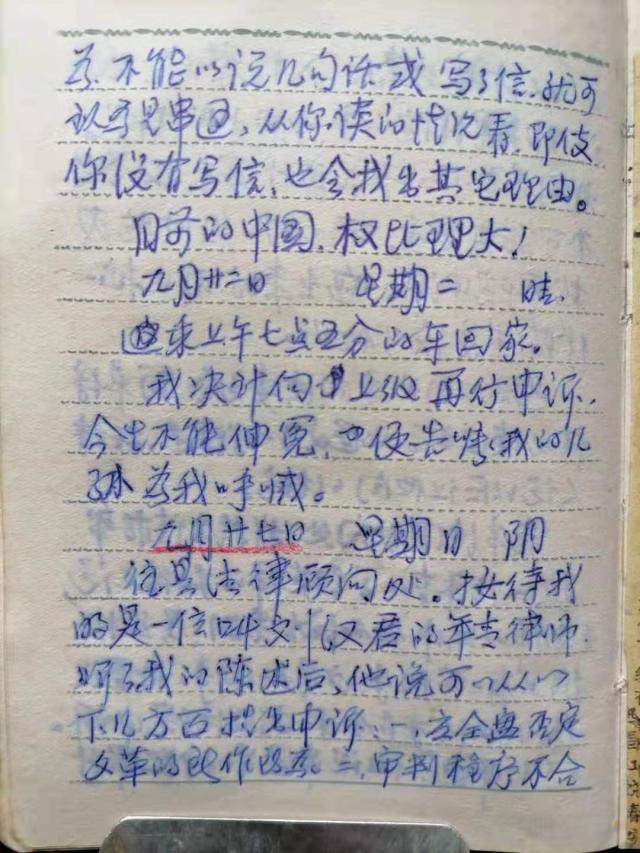 不能以说几句话或写了信,就可
认为是串通,从你读的情况看,即使
你没有写信,也会找出其它理由。
目前的中国,权比理大!
九月廿二日 星期二 晴.
乘上午七点五分的车回家。
我决计向上级再行申诉,
今生不能伸冤,也便告憐我的儿
孙为我呼喊。
九月廿七日 星期日 阴
往县法律顾问处。接待我
的是一位叫 汉君的年青律师.
听了我的陈述后,他说可以从以
下几方面提出申诉:一、应全盘否定
文革的 二、审判程序不合